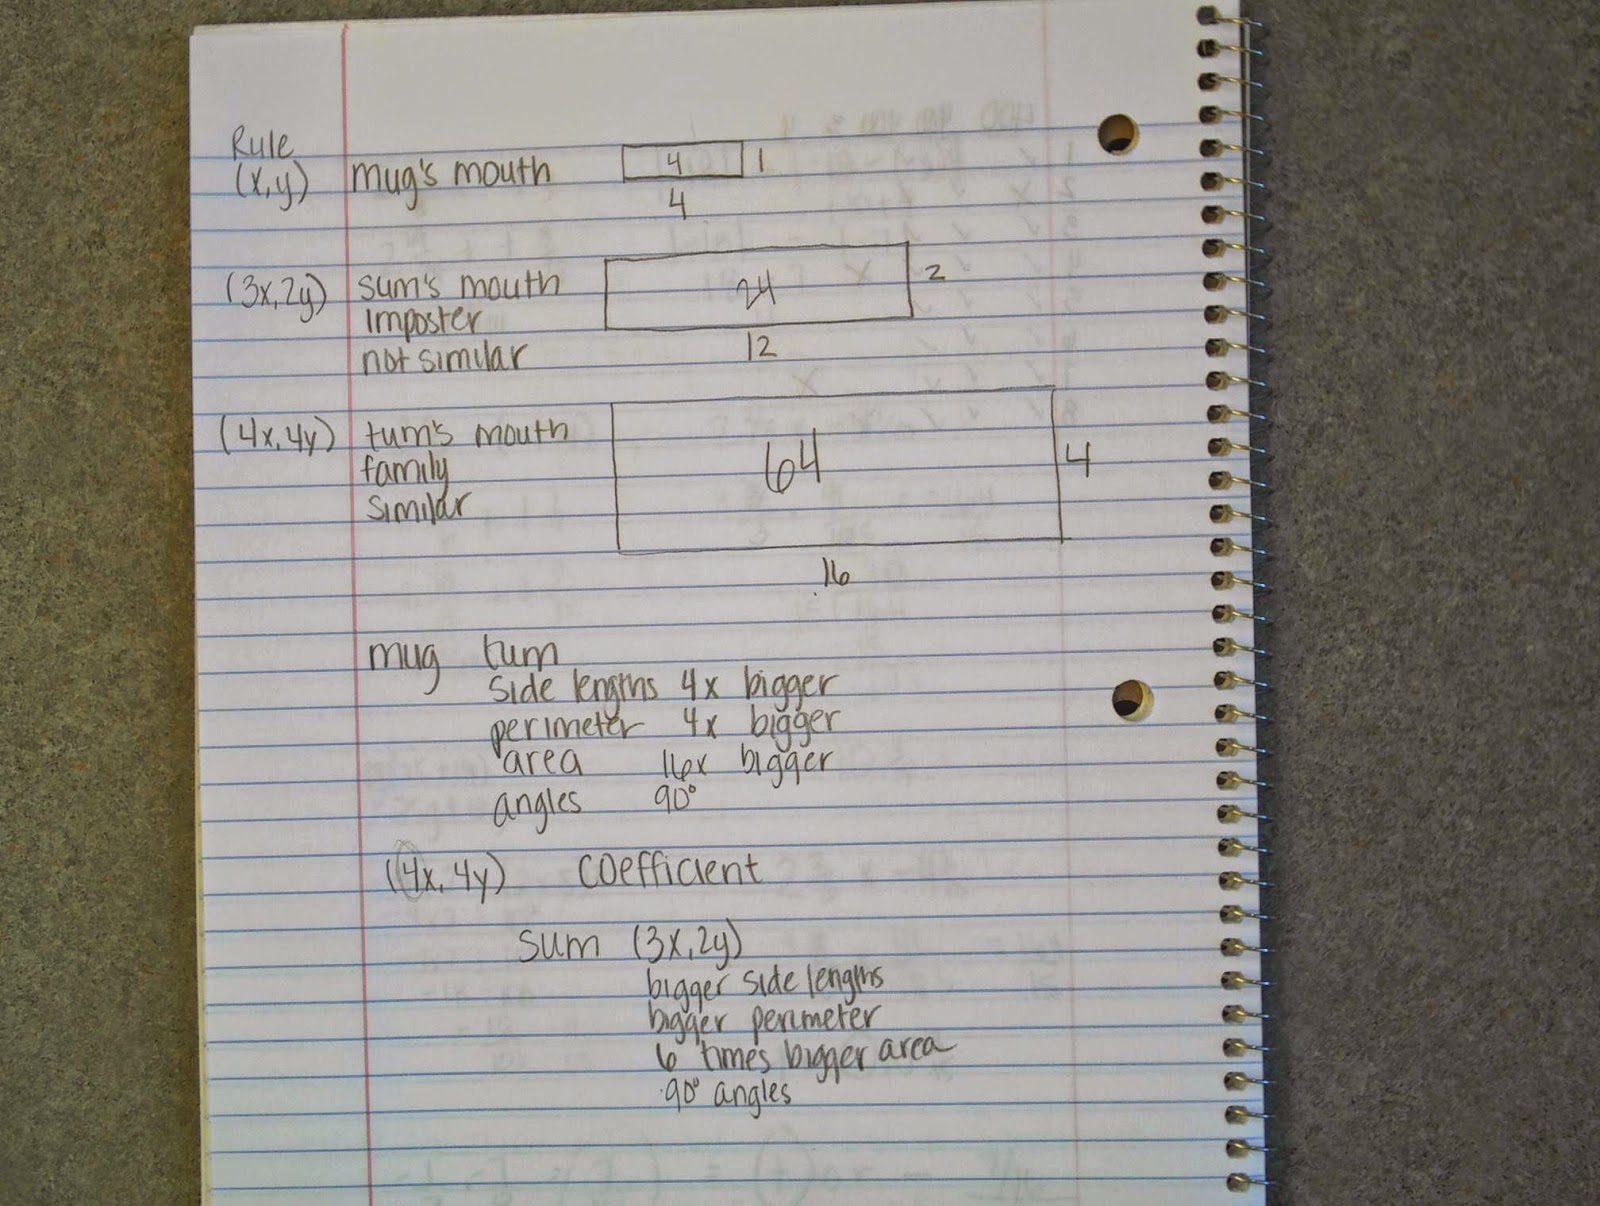 Rule
(x,y) mug's mouth 4 1
4
(3x,2y) sum's mouth 24 2
imposter
not similar 12
(4x,4y) tum's mouth 64 4
family
similar
16
mug tum
side lengths 4x bigger
perimeter 4x bigger
area 16x bigger
angles 90°
(4x,4y) coefficient
sum (3x,2y)
bigger side lengths
bigger perimeter
6 times bigger area
90° angles